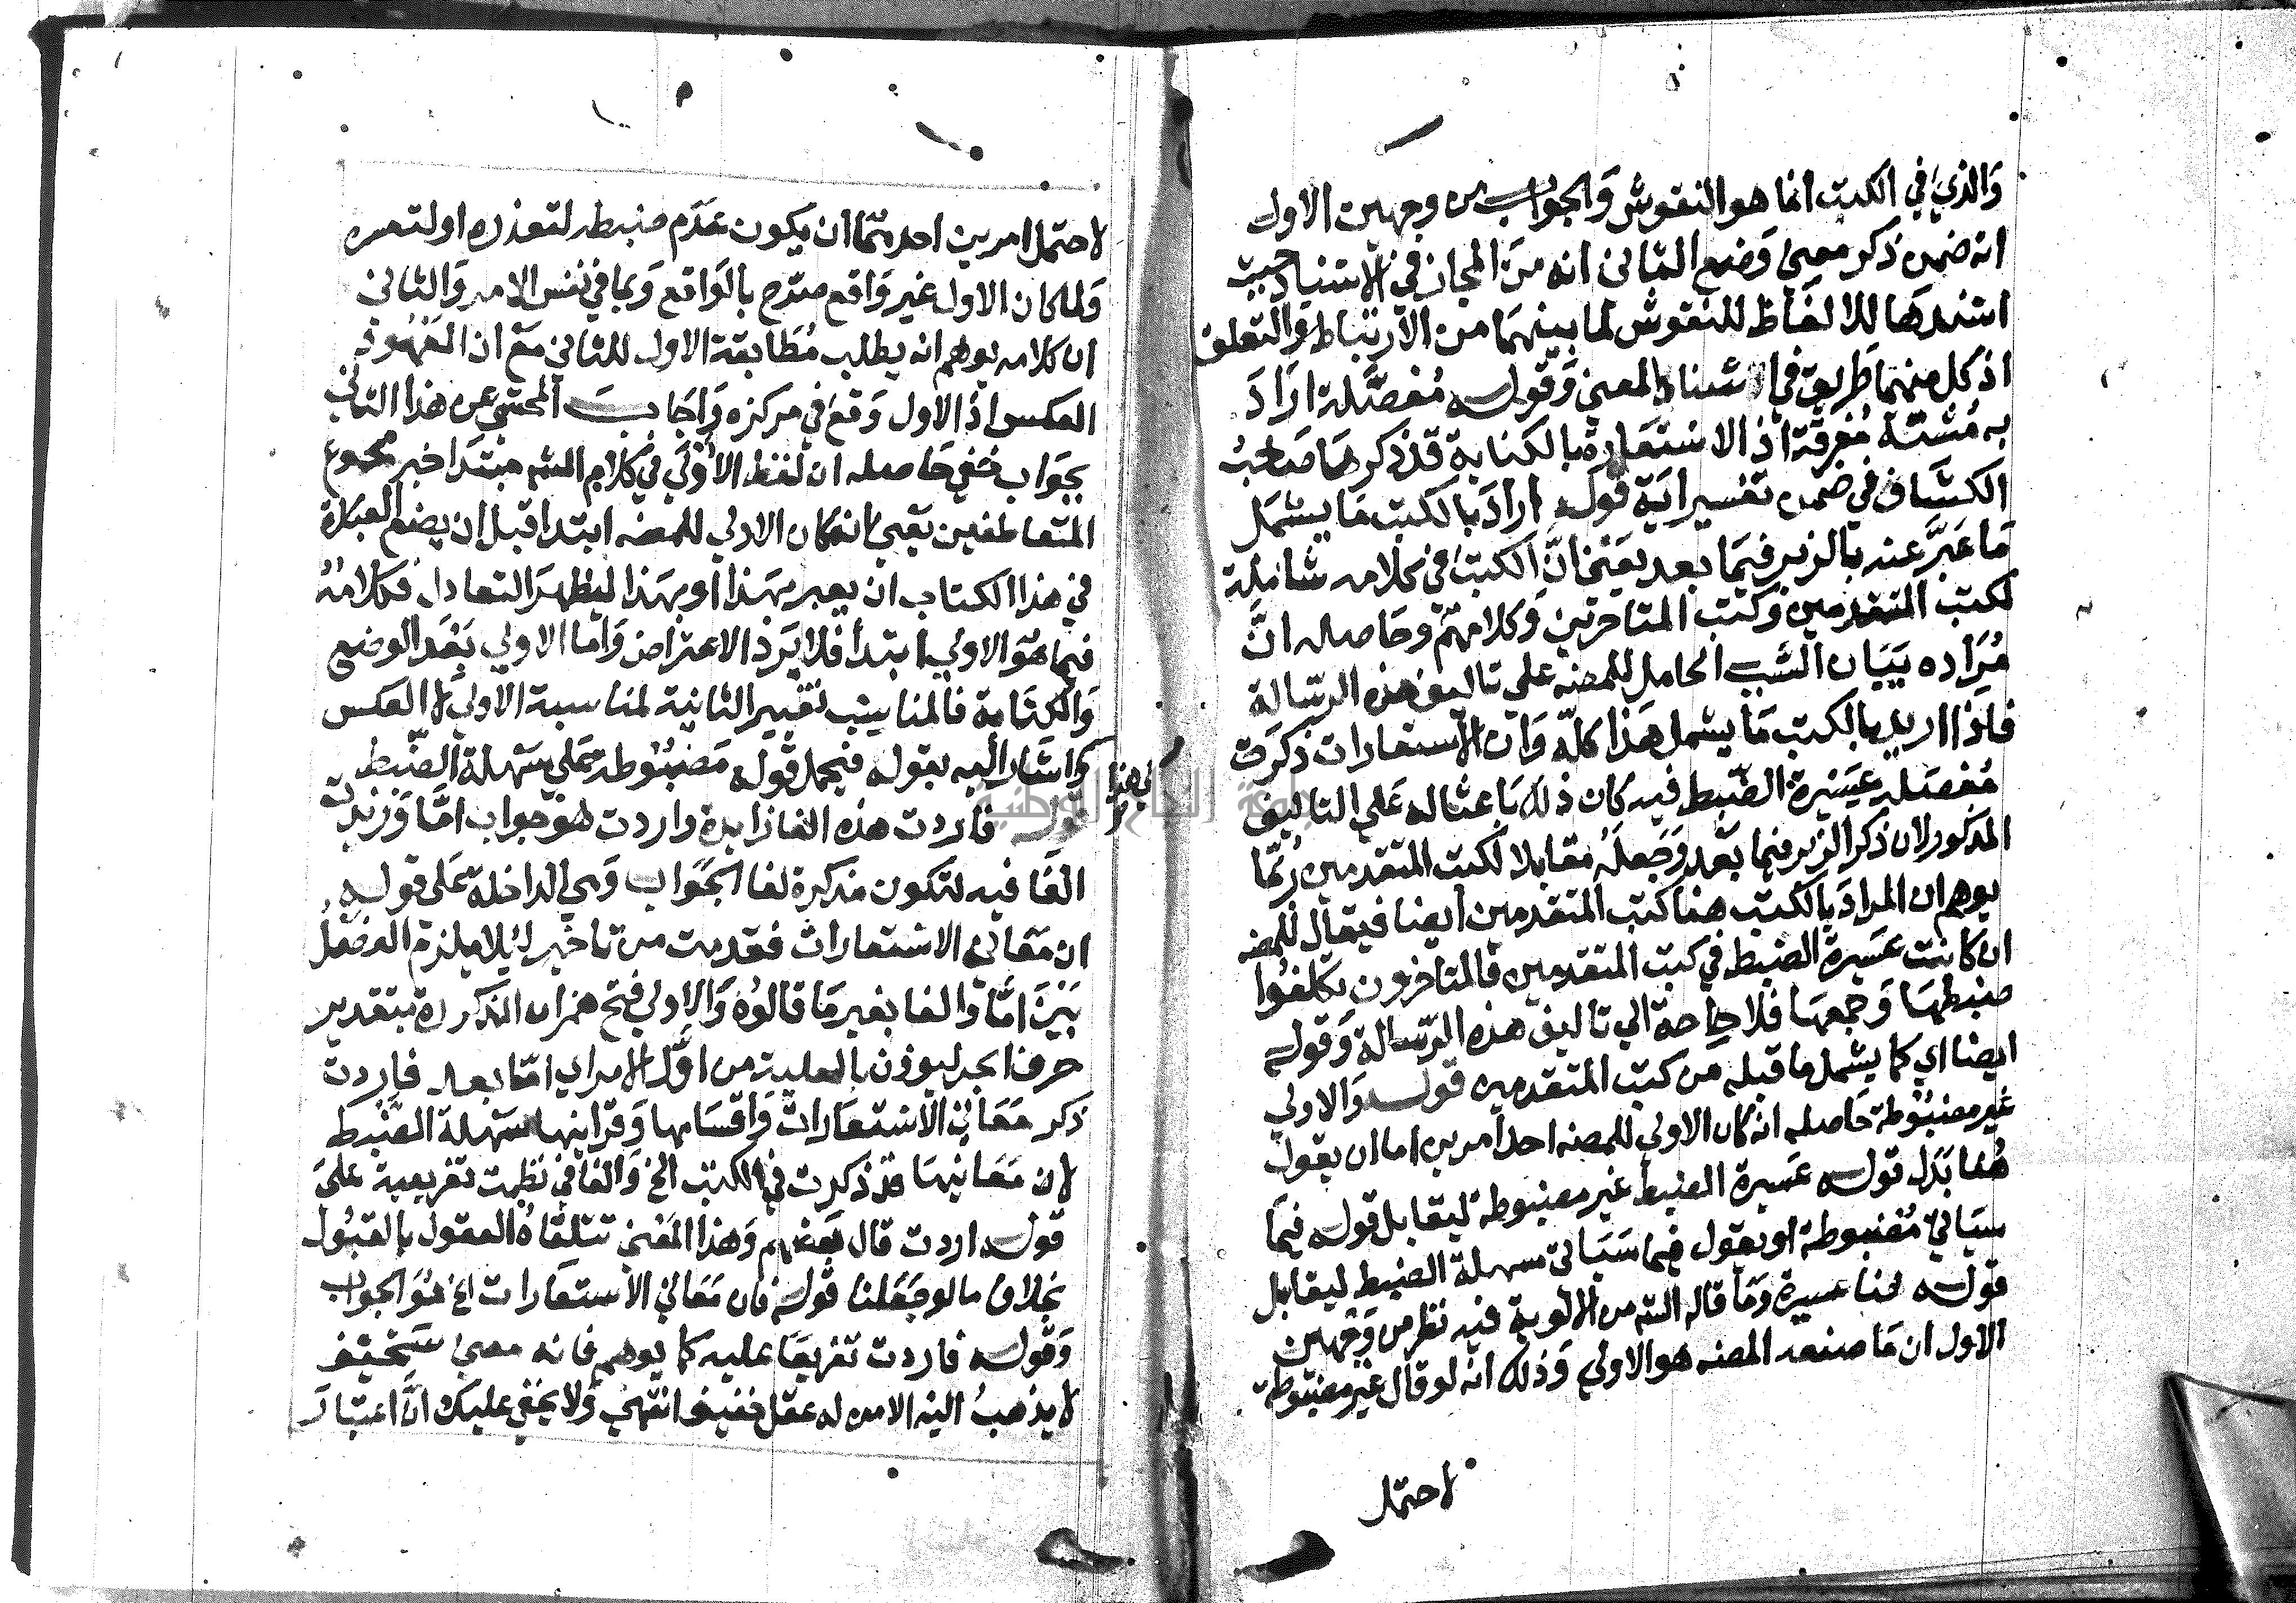 والذي في الكتب انما هو النقوش والجواب من وجهين الاول
انه ضمن ذكر معنى وضع الثاني انه من المجاز في الاسناد حيث
اسند كما للالفاظ للنقوش لما بينهما من الارتباط والتعلق
اذ كل منهما طريق في اسناد المعنى وقوله مفصلة اراد
به مشتتة مفرقة اذ الاستعارة بالكناية قد ذكرها صاحب
الكشاف في ضمن تفسير اية قوله اراد بالكتب ما يشمل
ما عبر عنه بالزبر فيما بعد يعني ان الكتب في كلامه شاملة
لكتب المتقدمين وكتب المتاخرين وكلامهم وحاصله ان
مراده بيان السبب الحامل للمصنه على تاليف هذه الرسالة
فاذا اريد بالكتب ما يشمل هذا كله وان الاستعارات ذكرت
مفصلة عسيرة الضبط فيه كان ذلك باعثا له على التاليف
المذكور لان ذكر الزبر فيما بعد وجعله مقابلا لكتب المتقدمين ربما
يوهم ان المراد بالكتب هنا كتب المتقدمين ايضا فيقال للمصنه
ان كانت عسيرة الضبط في كتب المتقدمين فالمتاخرون تكلفوا
ضبطها وجمعها فلا حاجة الي تاليف هذه الرسالة وقوله
ايضا اي كما يشمل ما قبله من كتب المتقدمين قوله والاولي
غير مضبوطة حاصله انه كان الاولي للمصنه احد امرين اما ان يقول
هنا بدل قوله عسيرة الضبط غير مضبوطة ليقابل قوله فيما
سياتي مضبوطة او يقول فيما سياتي سهلة الضبط ليقابل
قوله هنا عسيرة وما قاله الشم من الالوية فيه نظر من وجهين
الاول ان ما صنعه المصنه هو الاولي وذلك انه لو قال غير مضبوطة
لاحتمل
لاحتمل امرين احدهما ان يكون عدم ضبطه لتعذره او لتعسره
ولما كان الاول غير واقع صرح بالواقع وبما في نفس الامر والثاني
ان كلامه يوهم انه يطلب مطابقة الاول للثاني مع ان المعهود
العكس اذ الاول وقع في مركزه واجاب المحشي عن هذا الثاني
بجواب خفي حاصله ان لفظ الاولي في كلام الشم مبتدا خبر مجموع
المتعاطفين يعني انه كان الاولي للمصنه ابتدا قبل ان يضع العبارة
في هذا الكتاب ان يعبر بهذا او بهذا ليظهر التعادل فكلامه
فيما هو الاولي ابتدأ فلا يرد الاعتراض واما الاولي بعد الوضع
والكتابة فالمناسب تغيير الثانية لمناسبة الاولي لا العكس
كما شار اليه بقوله فيحمل قوله مضبوطة على سهلة الضبط
فاردت هذه الفا زايدة واردت هو جواب اما وزيدت
الفا فيه لتكون مذكرة لفا الجواب وهي الداخلة على قوله
ان معاني الاستعارات فقدمت من تاخير ليلا يلزم الفصل
بين اما والفا بغير ما قالوه والاولي فتح همزان المذكورة بتقدير
حرف الجر ليوذن بالعلية من اول الامر اي اما بعد فاردت
ذكر معاني الاستعارات واقسامها وقراينها سهلة الضبط
لان معانيها قد ذكرت في الكتب الخ والفا في نظمت تفريعية على
قوله اردت قال بعضهم وهذا المعني تتلقاه العقول بالقبول
بخلاف ما لو جعلنا قوله فان معاني الاستعارات الخ هو الجواب
وقوله فاردت تفريعا عليه كما يوهم فانه معنى سخيف
لا يذهب اليه الا من له عقل خفيف انتهى ولا يخفي عليك ان اعتبار